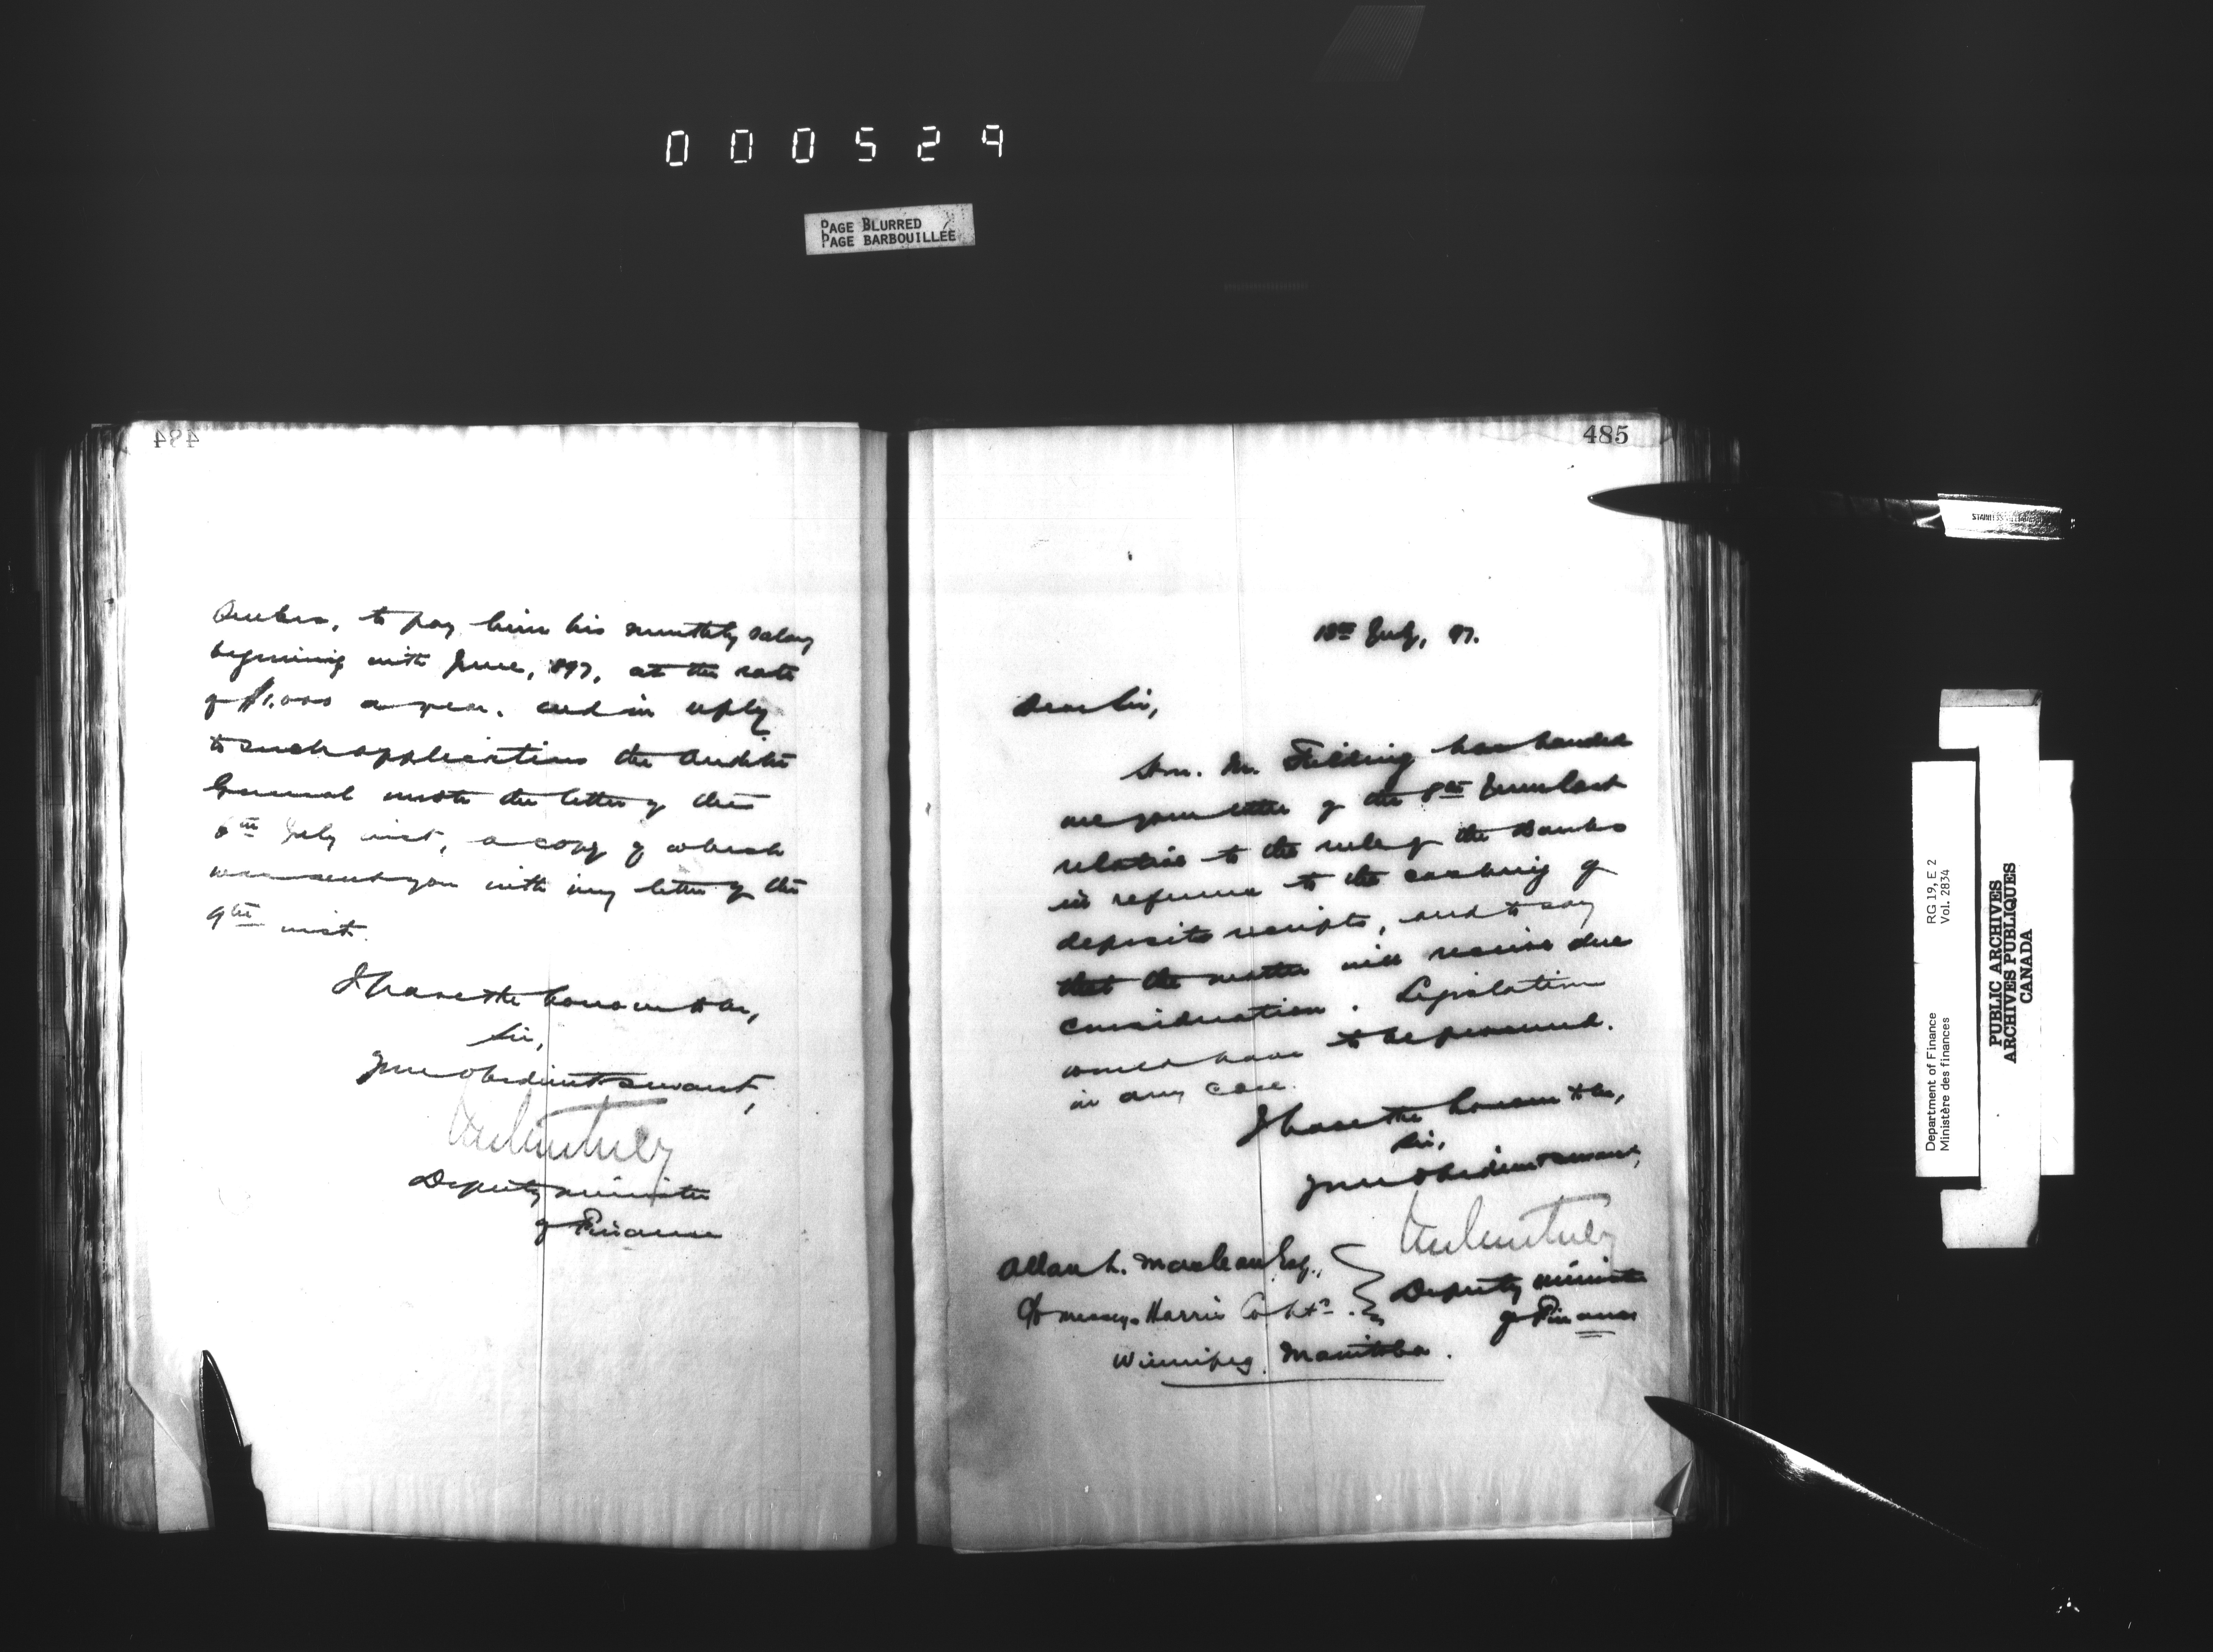 000529
PAGE BLURRED
PAGE BARBOUILLÉE
484
Quebec, to pay him his monthly salary
beginning with June, 1897, at the rate
of $1,000 a year, and in reply
to such application the Auditor
General wrote the letter of the
6th July inst, a copy of which
was sent you with my letter of the
9th inst.
I have the honour to be,
Sir,
Your obedient servant,
Deputy Minister
of Finance
485
July, 97.
Dear Sir,
Hon. Mr. Fielding has handed
me your letter of the 8th June last
relative to the rule of the Banks
in reference to the cashing of
deposit receipts, and to say
that the matter will receive due
consideration. Legislation
would have to be procured.
in any case.
I have the honour to be,
Sir,
Your obedient servant,
Deputy Minister
of Finance
Allan L. Maclean Esq.,
c/o Massey-Harris Co Ltd.
Winnipeg, Manitoba.
STAINLESS
Department of Finance RG 19, E 2
Ministère des finances Vol. 2834
PUBLIC ARCHIVES
ARCHIVES PUBLIQUES
CANADA